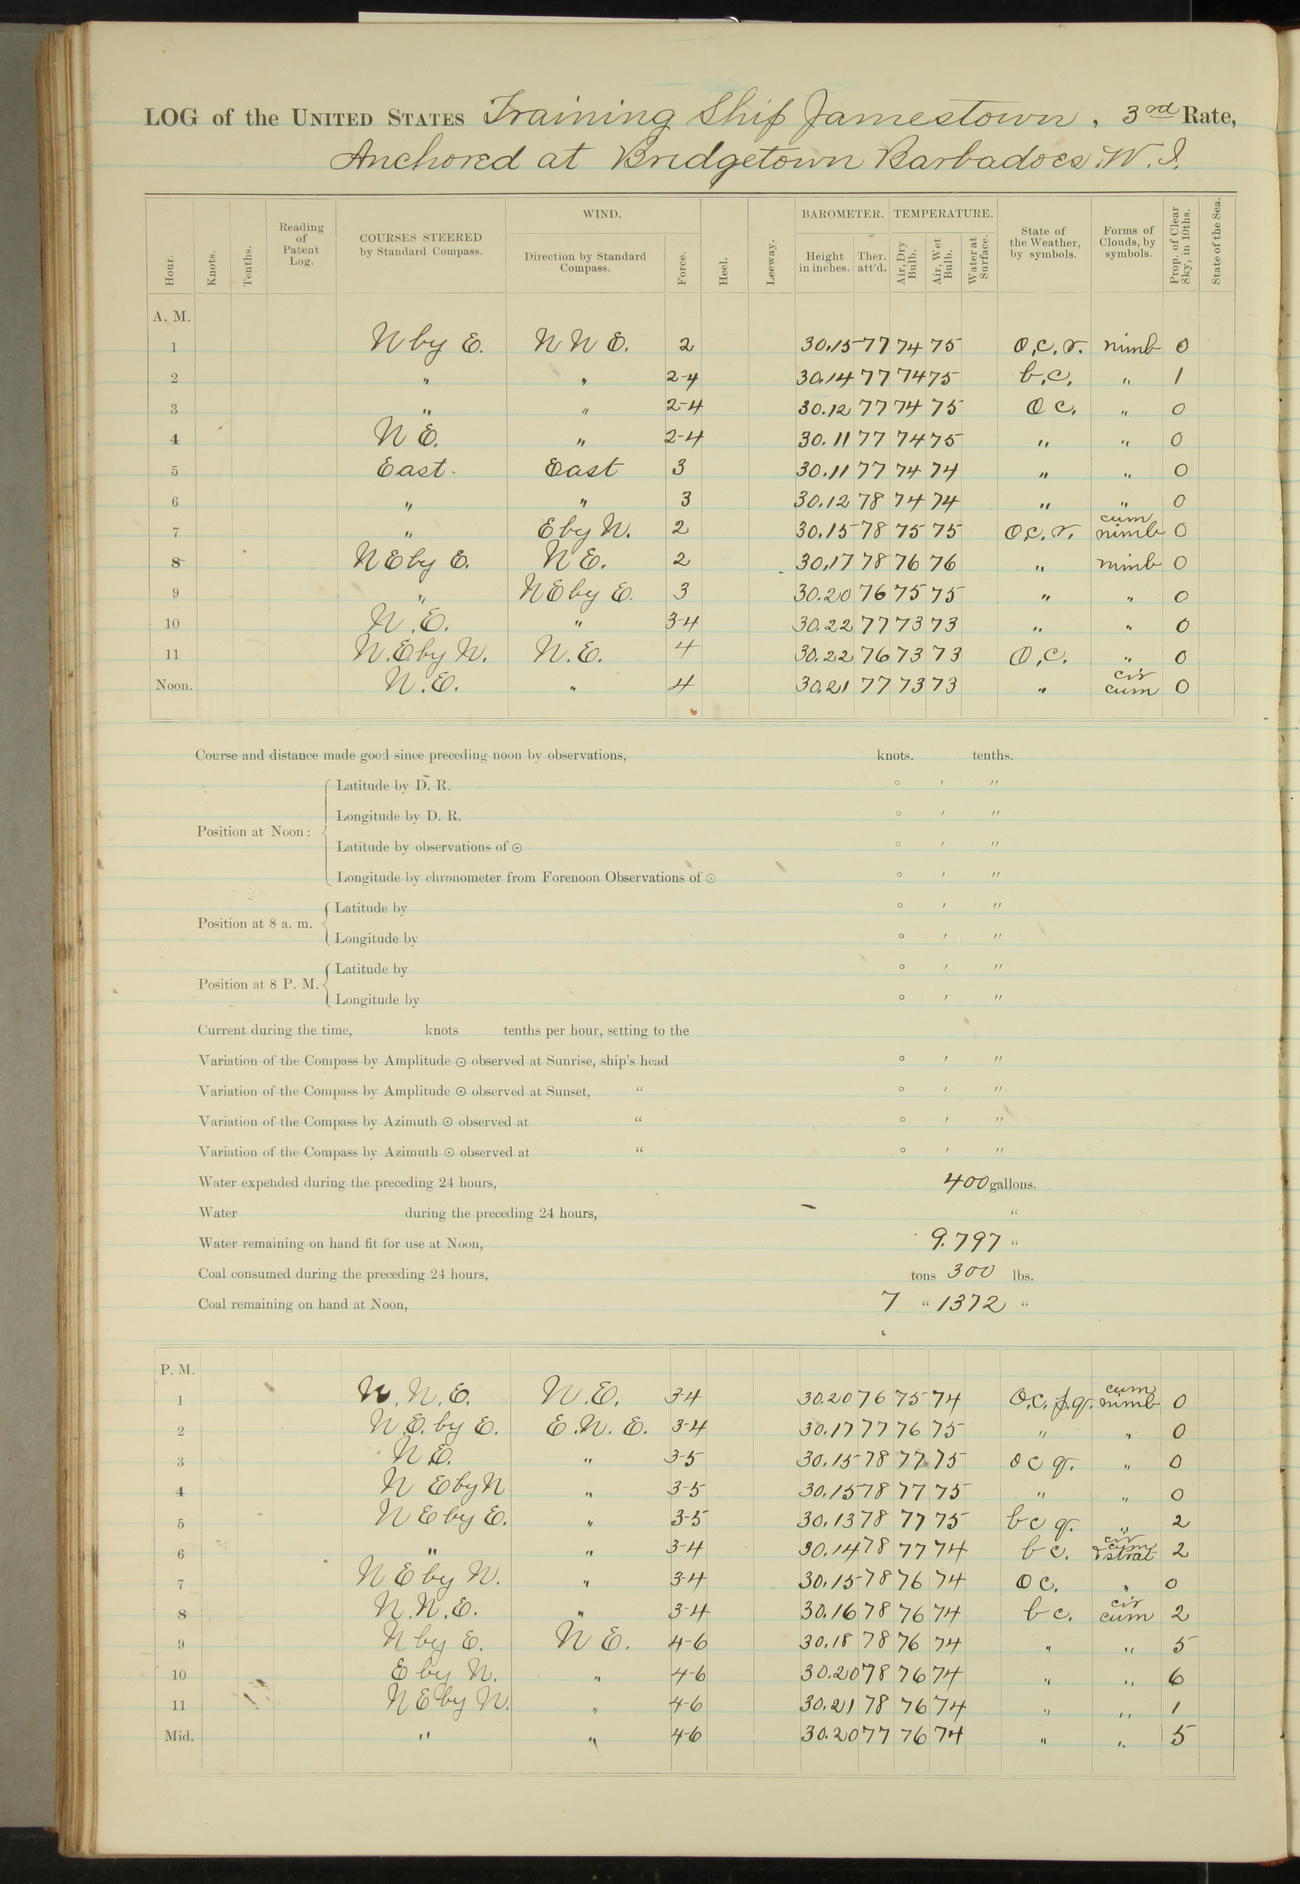 LOG of the UNITED STATES Training Ship Jamestown, 3rd Rate,
Anchored at Bridgetown Barbadoes W. I.
Hour. Knots. Tenths. Reading of Patent Log. COURSES STEERED by Standard Compass. WIND. Direction by Standard Compass. Force. Heel. Leeway. BAROMETER. Height in inches. Ther. att'd. TEMPERATURE. Air, Dry Bulb. Air, Wet Bulb. Water at Surface. State of the Weather, by symbols. Forms of Clouds, by symbols. Prop. of Clear Sky, in 10ths. State of the Sea.
A. M.
1 N by E. N N E. 2 30.15 77 74 75 O.c.r. nimb 0
2 " " 2-4 30.14 77 74 75 b.c. " 1
3 " " 2-4 30.12 77 74 75 O c. " 0
4 N E. " 2-4 30.11 77 74 75 " " 0
5 East. East 3 30.11 77 74 74 " " 0
6 " " 3 30.12 78 74 74 " " 0
7 " E by N. 2 30.15 78 75 75 O.c.r. cum nimb 0
8 N E by E. N E. 2 30.17 78 76 76 " nimb 0
9 " N E by E. 3 30.20 76 75 75 " " 0
10 N.E. " 3-4 30.22 77 73 73 " " 0
11 N.E. by N. N.E. 4 30.22 76 73 73 O.c. " 0
Noon. N.E. " 4 30.21 77 73 73 " cir cum 0
Course and distance made good since preceding noon by observations, knots. tenths.
Position at Noon:
Latitude by D. R. ° ′ ″
Longitude by D. R. ° ′ ″
Latitude by observations of ⊙ ° ′ ″
Longitude by chronometer from Forenoon Observations of ⊙ ° ′ ″
Position at 8 a. m.
Latitude by ° ′ ″
Longitude by ° ′ ″
Position at 8 P. M.
Latitude by ° ′ ″
Longitude by ° ′ ″
Current during the time, knots tenths per hour, setting to the
Variation of the Compass by Amplitude ⊙ observed at Sunrise, ship's head ° ′ ″
Variation of the Compass by Amplitude ⊙ observed at Sunset, " ° ′ ″
Variation of the Compass by Azimuth ⊙ observed at " ° ′ ″
Variation of the Compass by Azimuth ⊙ observed at " ° ′ ″
Water expended during the preceding 24 hours, 400 gallons.
Water during the preceding 24 hours, "
Water remaining on hand fit for use at Noon, 9.797 "
Coal consumed during the preceding 24 hours, tons 300 lbs.
Coal remaining on hand at Noon, 7 " 1372 "
P. M.
1 N.N.E. N.E. 3-4 30.20 76 75 74 O.c.p.q. cum nimb 0
2 N.E. by E. E.N.E. 3-4 30.17 77 76 75 " " 0
3 N E. " 3-5 30.15 78 77 75 o c q. " 0
4 N E by N " 3-5 30.15 78 77 75 " " 0
5 N E by E. " 3-5 30.13 78 77 75 b c q. " 2
6 " " 3-4 30.14 78 77 74 b c. cir cum & strat 2
7 N E by N. " 3-4 30.15 78 76 74 o c. " 0
8 N.N.E. " 3-4 30.16 78 76 74 b c. cir cum 2
9 N by E. N E. 4-6 30.18 78 76 74 " " 5
10 E by N. " 4-6 30.20 78 76 74 " " 6
11 N E by N. " 4-6 30.21 78 76 74 " " 1
Mid. " " 4-6 30.20 77 76 74 " " 5